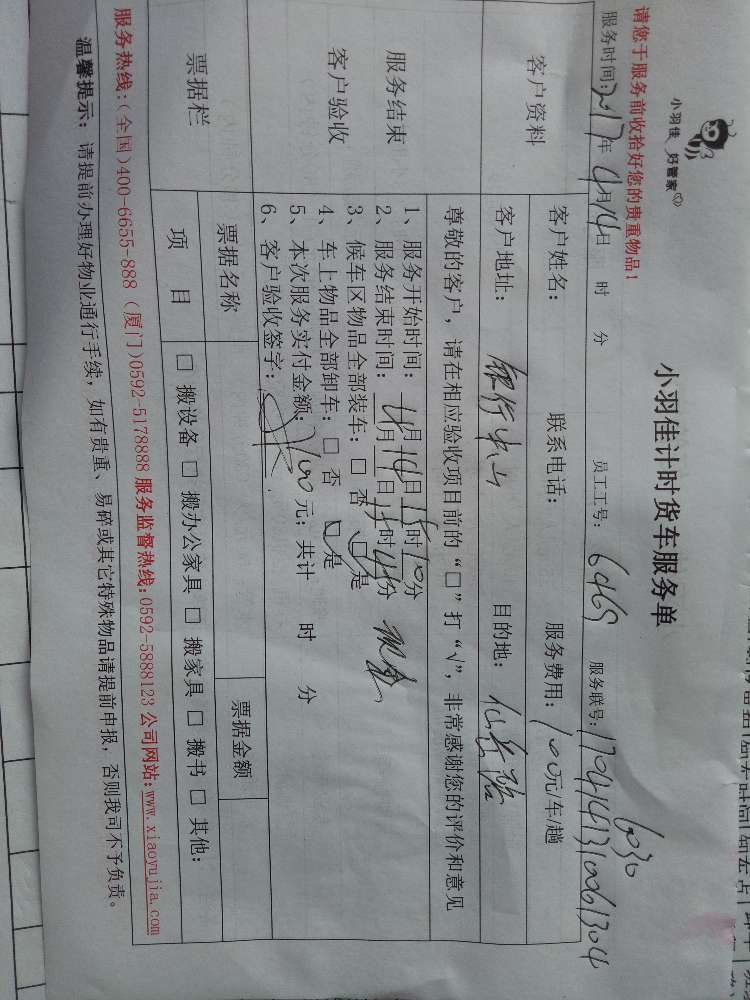 小羽佳 好管家
小羽佳计时货车服务单
请您于服务前收拾好您的贵重物品！
6030
服务时间：2017年4月14日 时 分 员工工号：6469 服务联号：1704141310061304
客户资料
客户姓名： 联系电话： 服务费用：100元/车/趟
客户地址：银行中心 目的地：仙岳路
服务结束
客户验收
尊敬的客户，请在相应验收项目前的“□”打“√”，非常感谢您的评价和意见
1、服务开始时间：4月14日15时10分
2、服务结束时间：4月14日15时40分 现金
3、候车区物品全部装车：□ 否 □是
4、车上物品全部卸车：□ 否 □是
5、本次服务实付金额：100元；共计 时 分
6、客户验收签字：
票据栏
票据名称 票据金额
项 目 □ 搬设备 □ 搬办公家具 □ 搬家具 □ 搬书 □ 其他：
服务热线：(全国)400-6655-888 (厦门)0592-5178888 服务监督热线：0592-5888123 公司网站：www.xiaoyujia.com
温馨提示：请提前办理好物业通行手续，如有贵重、易碎或其它特殊物品请提前申报，否则我司不予负责。